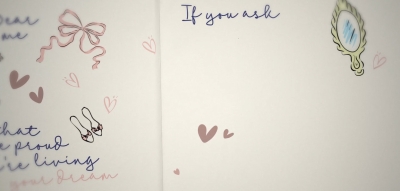 Dear
me
that
e proud
're living
your dream
If you ask